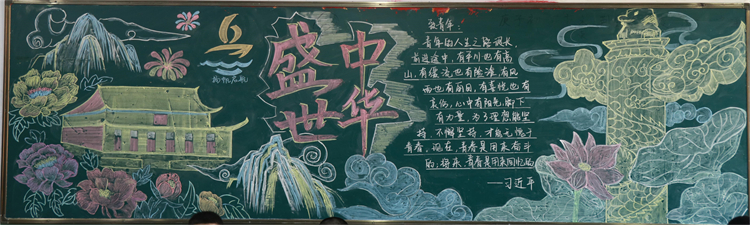 扬帆启航
盛世
中华
致青年：
青年的人生之路很长，
前进途中，有平川也有高
山，有缓流也有险滩，有风
雨也有丽日，有喜悦也有
哀伤，心中有阳光，脚下
有力量，为了理想能坚
持、不懈坚持，才能无愧于
青春，现在，青春是用来奋斗
的；将来，青春是用来回忆的
——习近平